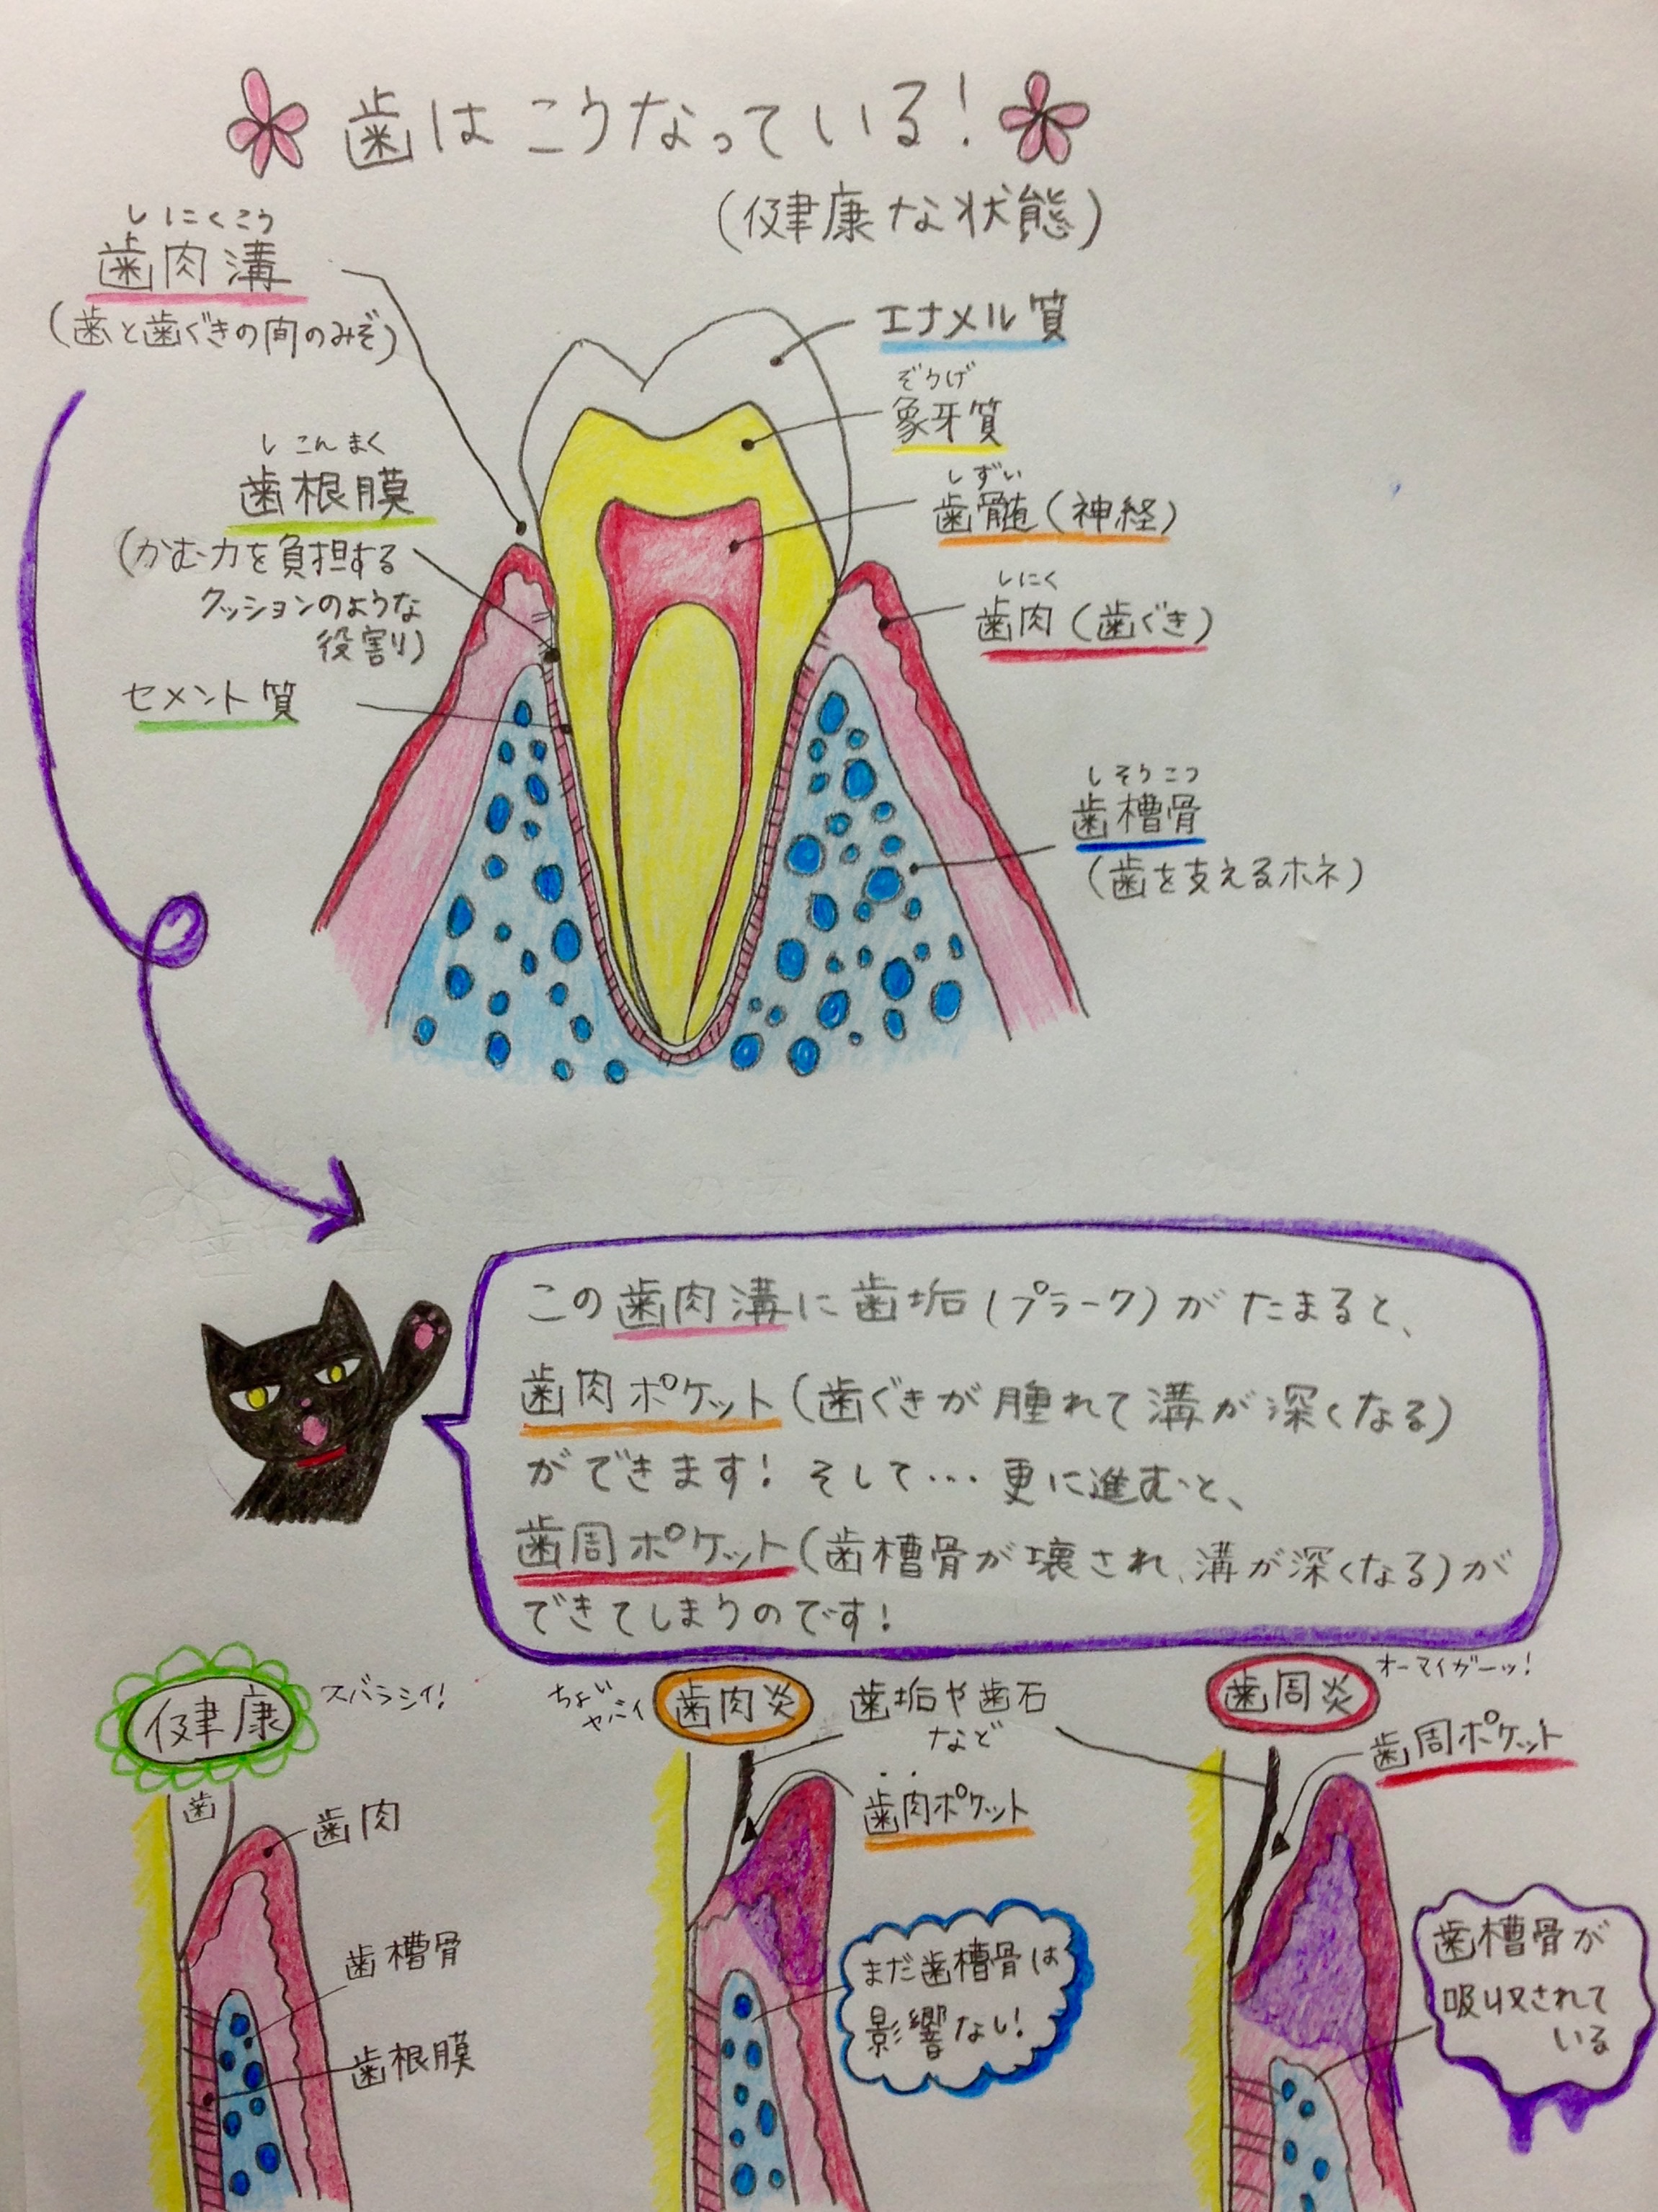 歯はこうなっている!
(健康な状態)
しにくこう
歯肉溝
(歯と歯ぐきの間のみぞ)
エナメル質
ぞうげ
象牙質
しこんまく
歯根膜
(かむ力を負担する
クッションのような
役割)
しずい
歯髄(神経)
しにく
歯肉(歯ぐき)
セメント質
しそうこつ
歯槽骨
(歯を支えるホネ)
この歯肉溝に歯垢(プラーク)がたまると、
歯肉ポケット(歯ぐきが腫れて溝が深くなる)
ができます!そして…更に進むと、
歯周ポケット(歯槽骨が壊され、溝が深くなる)が
できてしまうのです!
健康
スバラシイ!
歯
歯肉
歯槽骨
歯根膜
ちょい
ヤバイ
歯肉炎
歯垢や歯石
など
歯肉ポケット
まだ歯槽骨は
影響なし!
歯周炎
オーマイガーッ!
歯周ポケット
歯槽骨が
吸収されて
いる